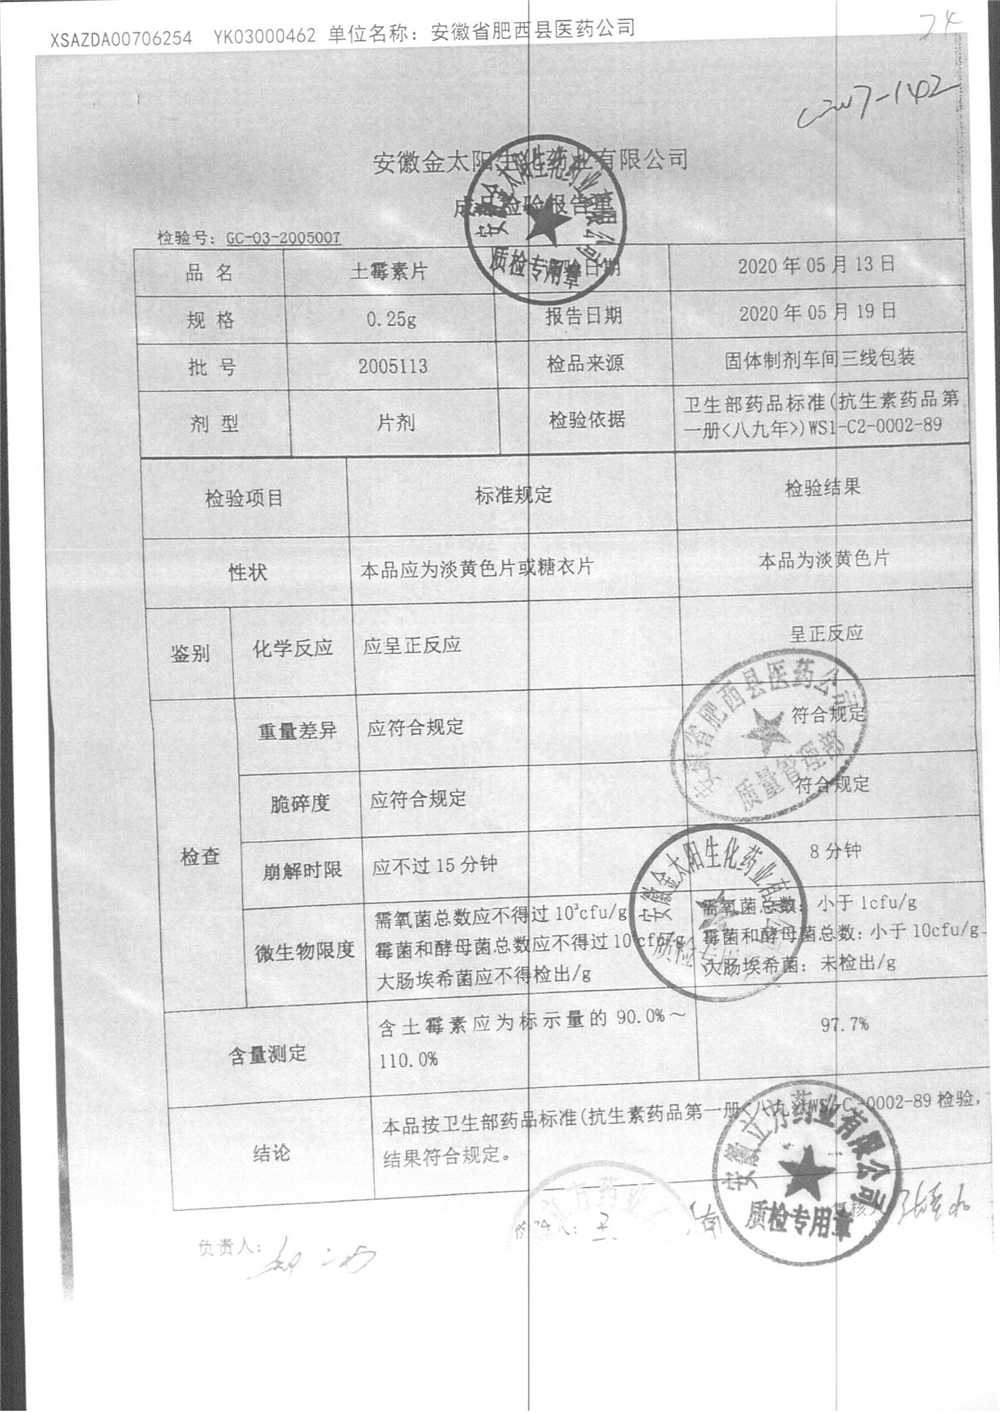 XSAZDA00706254 YK03000462 单位名称：安徽省肥西县医药公司
74
安徽金太阳生化药业有限公司
成品检验报告单
检验号：GC-03-2005007
品 名 土霉素片 检验日期 2020 年 05 月 13 日
规 格 0.25g 报告日期 2020 年 05 月 19 日
批 号 2005113 检品来源 固体制剂车间三线包装
剂 型 片剂 检验依据 卫生部药品标准(抗生素药品第
一册<八九年>)WS1-C2-0002-89
检验项目 标准规定 检验结果
性状 本品应为淡黄色片或糖衣片 本品为淡黄色片
鉴别 化学反应 应呈正反应 呈正反应
检查 重量差异 应符合规定 符合规定
脆碎度 应符合规定 符合规定
崩解时限 应不过 15 分钟 8 分钟
微生物限度 需氧菌总数应不得过 10³cfu/g 需氧菌总数：小于 1cfu/g
霉菌和酵母菌总数应不得过 10²cfu/g 霉菌和酵母菌总数：小于 10cfu/g
大肠埃希菌应不得检出/g 大肠埃希菌：未检出/g
含量测定 含土霉素应为标示量的 90.0%～ 97.7%
110.0%
结论 本品按卫生部药品标准(抗生素药品第一册<八九年>)WS1-C2-0002-89 检验，
结果符合规定。
负责人：
安徽金太阳生化药业有限公司
质检专用章
安徽省肥西县医药公司
质量管理部
安徽金太阳生化药业有限公司
质检专用章
安徽立方药业有限公司
质检专用章